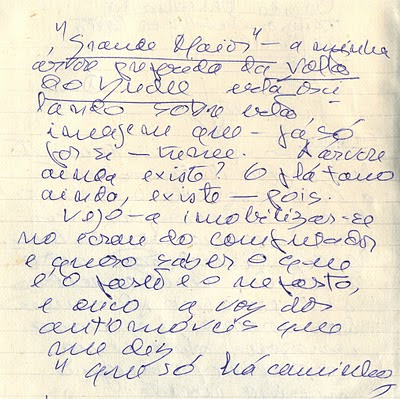 "Grande Maior" – a minha
árvore preferida da Volta
do Duche está osci
lando sobre esta
imagem que – já, só
por si – treme. A árvore
ainda existe? O plátano
ainda, existe – pois.
Vejo-a imobilizar-se
no écran do computador
e quero saber o que
é o fasto e o nefasto,
e oiço a voz dos
automóveis que
me diz
"que só há caminho